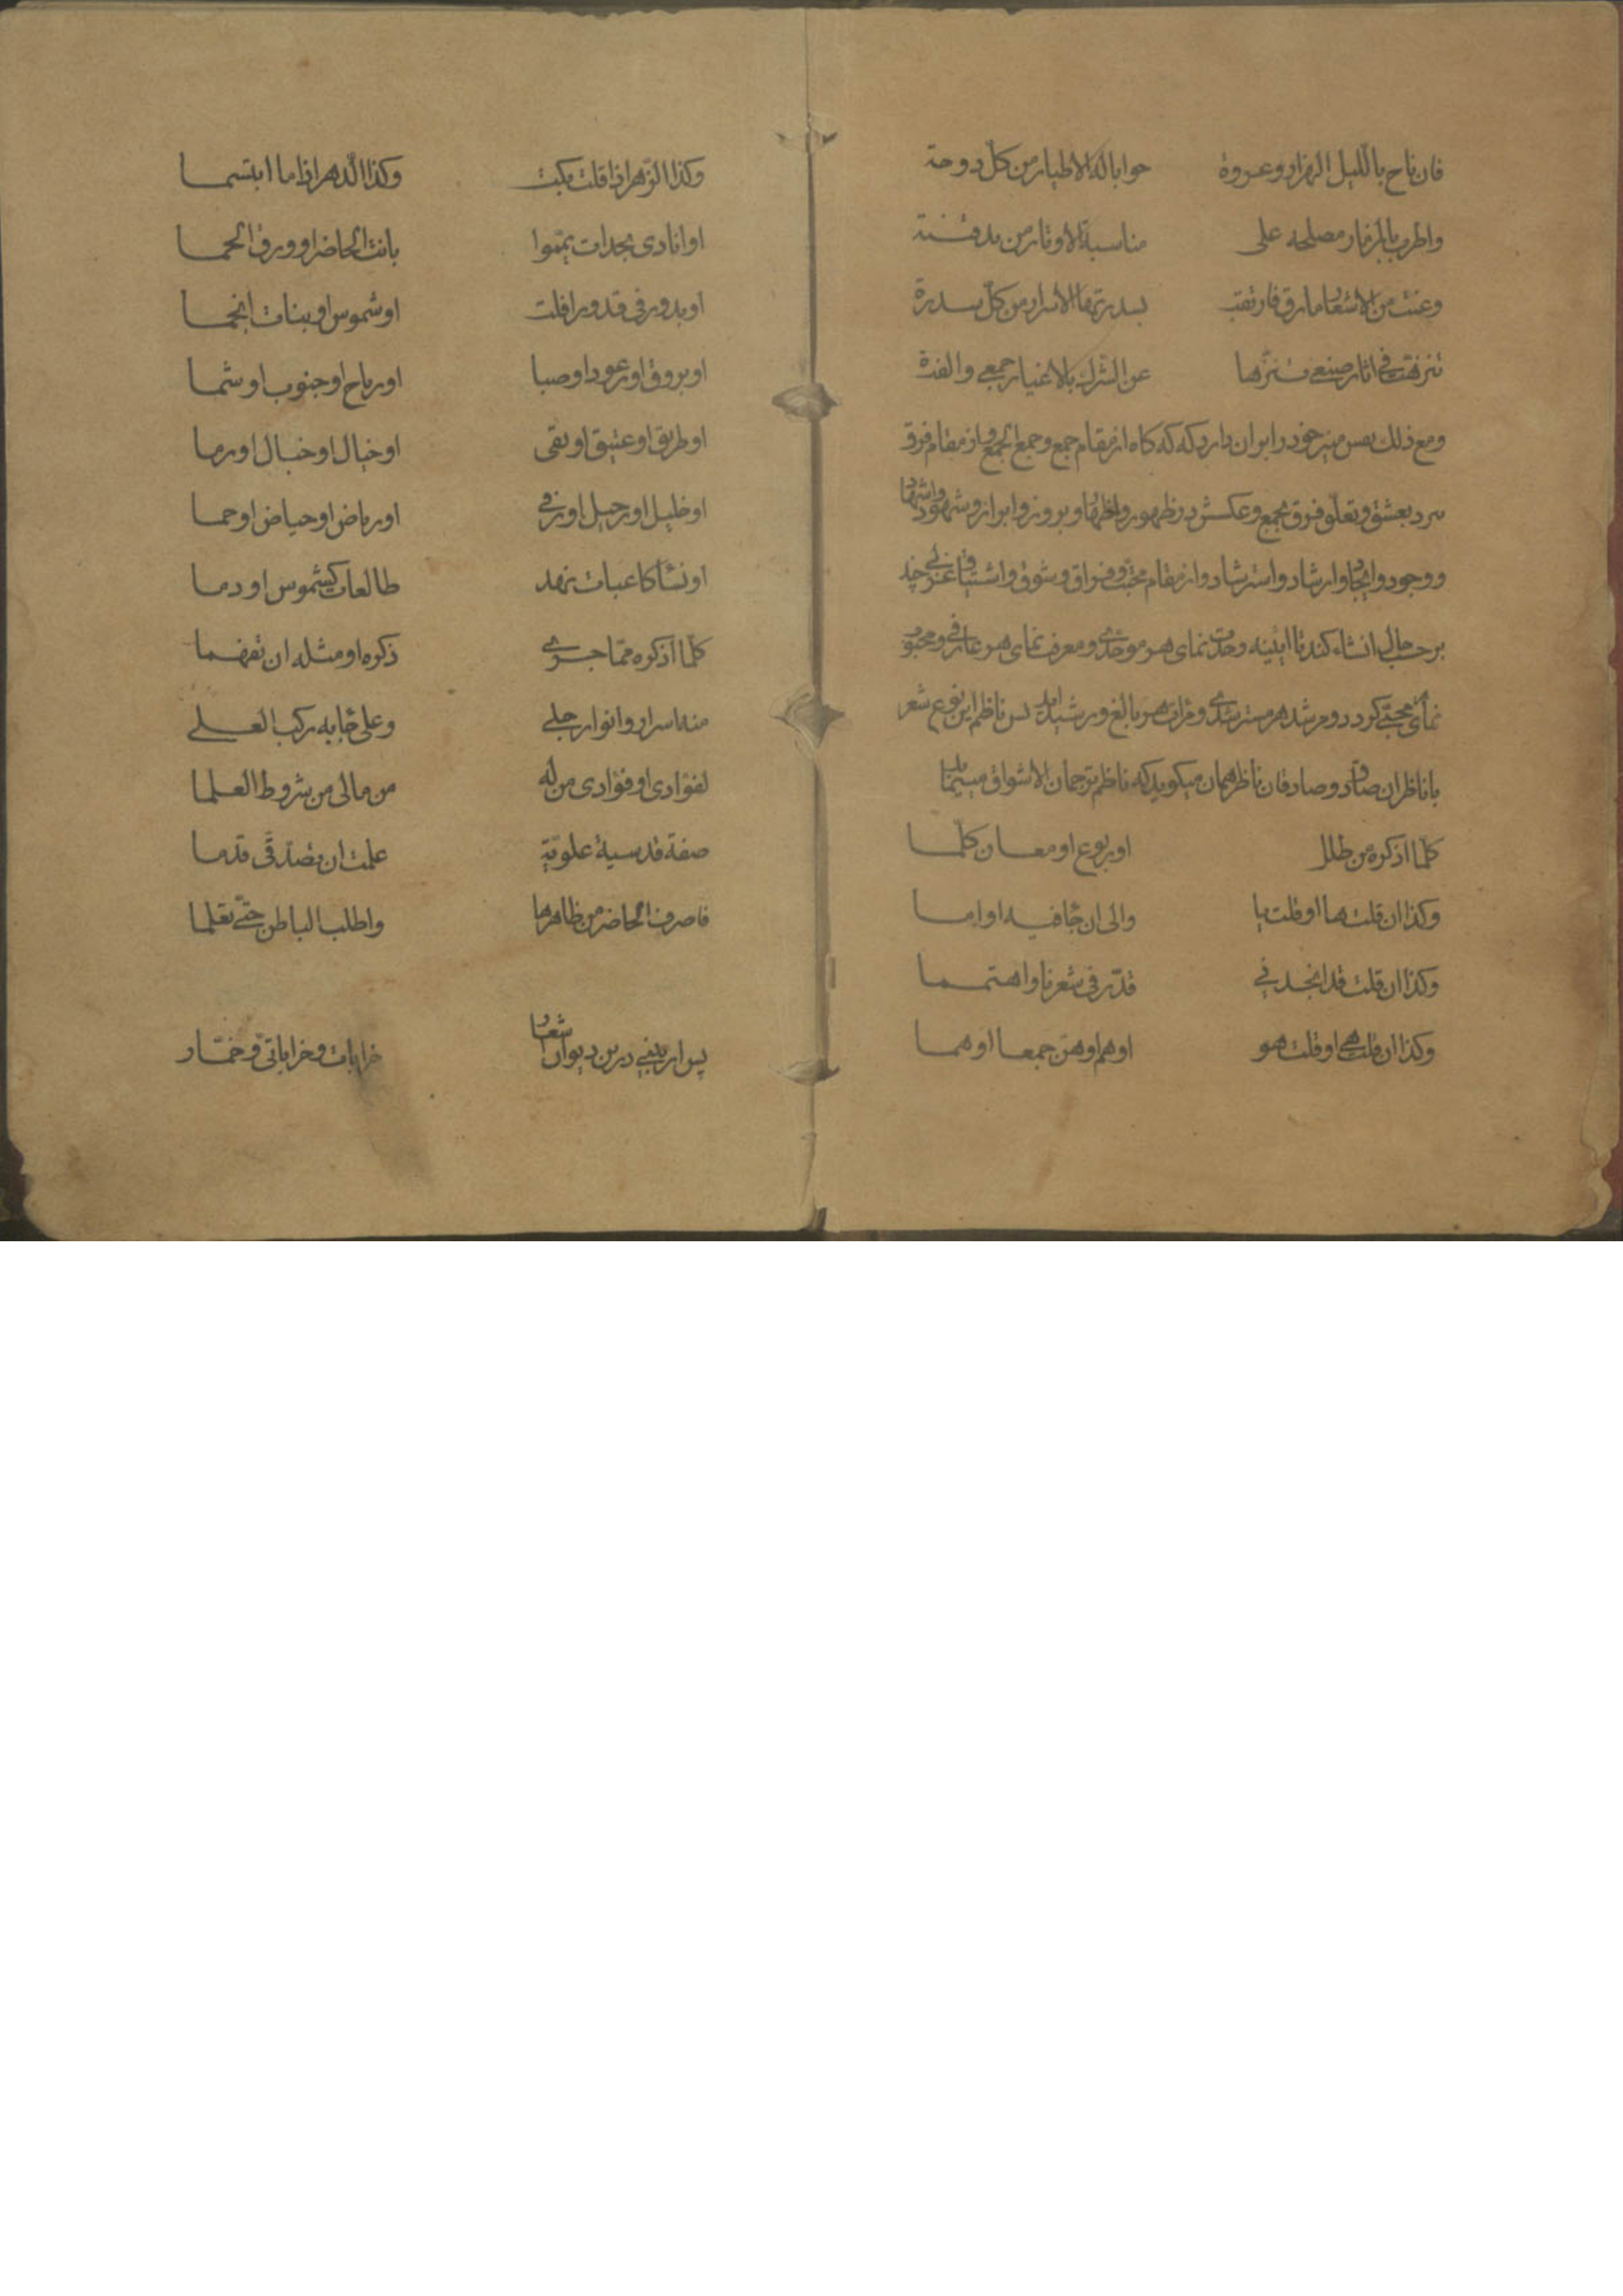 فان ناح باللیل الهزار وعروة جوابا له الاطیار من کل دوحة
واطرب بالمزمار مصلحه علی مناسبة الاوتار من ید قینة
وغنت من الاشعار ما رق فارتقت بسدرتها الاسرار من کل سدرة
تنزهت فی اثار صنعی تنزها عن الشرک بالاغیار جمعی والفة
ومع ذلک بس خود را بران دارد که که کاه از مقام جمع وجمع الجمع واز مقام فرق
بعشق وتعلق فرق بجمع وعکسش در ظهور واظهار وبروز وابراز وشهود واشهاد
ووجود وایجاد وارشاد واسترشاد واز مقام محبت وفراق وشوق واشتیاق غزلی چند
بر حسب حال انشاء کند تا ائینه وحدت نمای هر موحدی ومعرف نمای هر عارفی ومحبوب
نمای محبی کردد ومرشد هر مسترشدی هر بالغ ورشید اید بس ناظم این نوع شعر
با ناظران صادق وصادقان ناظر همان میکوید که ناظم ترجمان الاشواق
کلما اذکره من طلل او ربوع او معان کلما
وکذا ان قلت ها او قلت یا والی ان جا فیه او اما
وکذا ان قلت قد انجد فی قدر فی شعرنا واهتما
وکذا ان قلت هی او قلت هو او هم او هن جمعا او هما
وکذا الزهر اذا قلت بکت وکذا الدهر اذا ما ابتسما
او انادی بحداة یمموا بانة الحاضر او ورق الحما
او بدور فی قدور افلت او شموس او بنات انجما
او بروق او رعود او صبا او ریاح او جنوب او شما
او طریق او عقیق او نقی او خیال او خبال او رما
او خلیل او رحیل او ربی او ریاض او حیاض او حما
او نشا کاعبات نهد طالعات کشموس او دما
کلما اذکره مما جری ذکره او مثله ان تفهما
منه اسرار وانوار جلی وعلی جا به رکب العلی
لفؤادی او فؤادی من له من مالی من شروط العلما
صفة قدسیة علویة علمت ان تصدقی قدما
فاصرف الحاضر من ظاهرها واطلب الباطن حتی تعلما
پس ار بینی درین دیوان اشعار خرابات وخراباتی وخمار